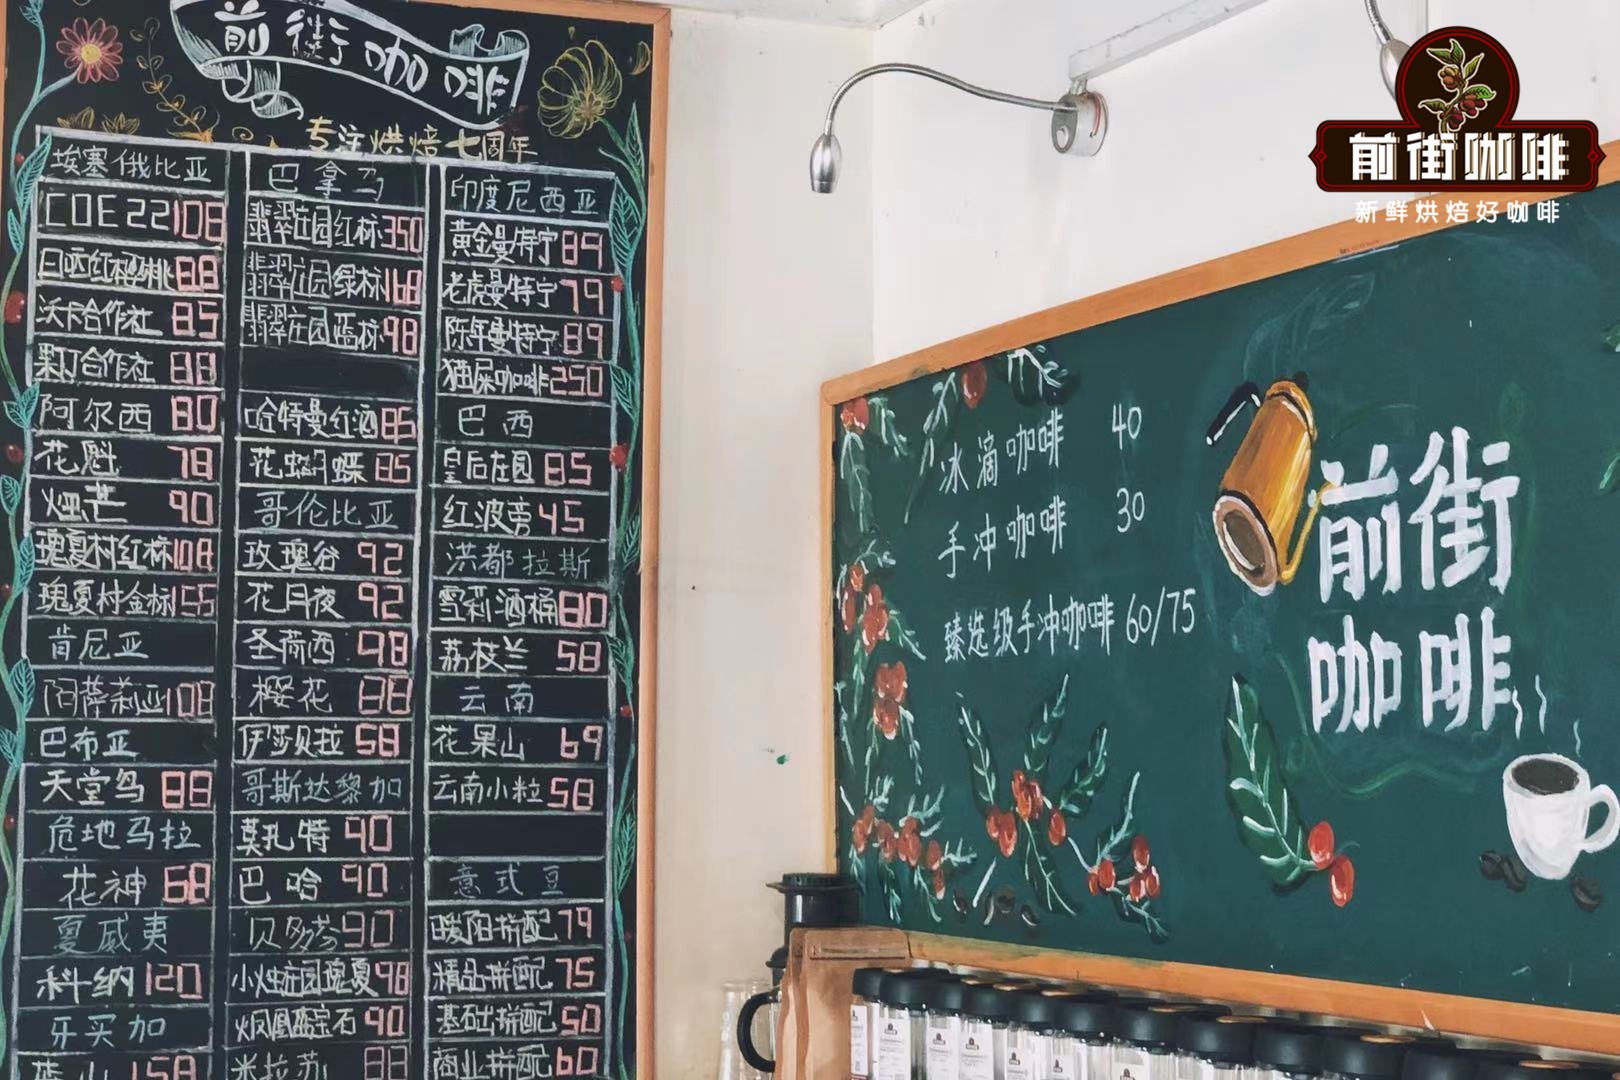 前街咖啡
专注烘焙七周年
埃塞俄比亚
COE 22 108
日晒红樱桃 88
沃卡合作社 85
果丁合作社 88
阿尔西 80
花魁 78
烟芒 90
瑰夏村红标 108
瑰夏村金标 155
肯尼亚
阿萨莉亚 108
巴布亚
天堂鸟 88
危地马拉
花神 68
夏威夷
科纳 120
牙买加
蓝山 158
巴拿马
翡翠庄园红标 350
翡翠庄园绿标 168
翡翠庄园蓝标 98
哈特曼红酒 85
花蝴蝶 85
哥伦比亚
玫瑰谷 92
花月夜 92
圣荷西 98
樱花 88
伊莎贝拉 58
哥斯达黎加
莫扎特 90
巴哈 90
贝多芬 90
小烛庄园瑰夏 98
火凤凰蓝宝石 90
米拉苏 88
印度尼西亚
黄金曼特宁 89
老虎曼特宁 79
陈年曼特宁 89
猫屎咖啡 250
巴西
皇后庄园 85
红波旁 45
洪都拉斯
雪莉酒桶 80
荔枝兰 58
云南
花果山 69
云南小粒 58
意式豆
暖阳拼配 79
精品拼配 75
基础拼配 50
商业拼配 60
前街咖啡
新鲜烘焙好咖啡
冰滴咖啡 40
手冲咖啡 30
臻选级手冲咖啡 60/75
前街
咖啡